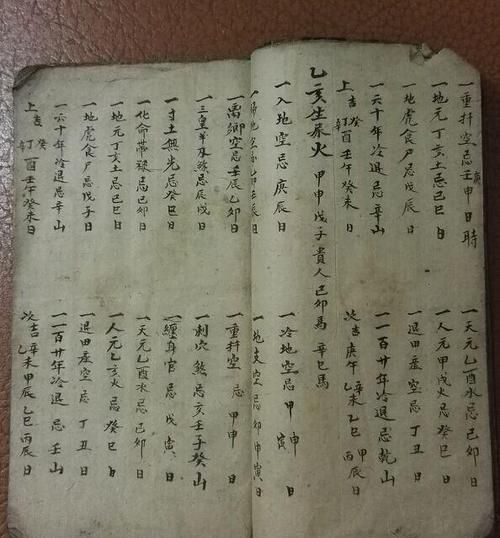 一重拜空忌壬申日時
庚
一地元丁亥土忌己巳日
一地虎食尸忌戊辰日
一六十年冷退忌辛山
上吉癸酉壬午癸未日
辛丁
一天元乙酉水忌己卯日
一人元甲戌火忌癸巳日
一退田虛空忌丁丑日
一一百廿年冷退忌乾山
次吉庚午辛未乙巳甲辰日
乙丙
乙亥生屬火甲申戊子貴人己卯馬辛巳馬
一入地空忌庚辰日
一冷地空忌甲申寅日
一地支空忌卯申寅日
一禹鄉空忌壬辰乙卯日
一三皇羊水煞忌辰戌日
一寸土無光忌癸巳日
一化命帶祿忌己卯日
一地元丁亥土忌己巳日
一地虎食尸忌戊子日
一六十年冷退忌辛山
上吉癸酉壬午癸未日
辛丁
一重拜空忌甲申日
一刺穴煞忌亥壬子癸山
一纏身官忌戊寅日
一天元乙酉水忌己卯日
一人元乙亥火忌癸巳日
一退田虛空忌丁丑日
一一百廿年冷退忌壬山
次吉辛未甲辰乙巳丙辰日
乙